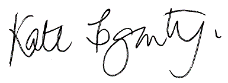 Kate Fogarty.